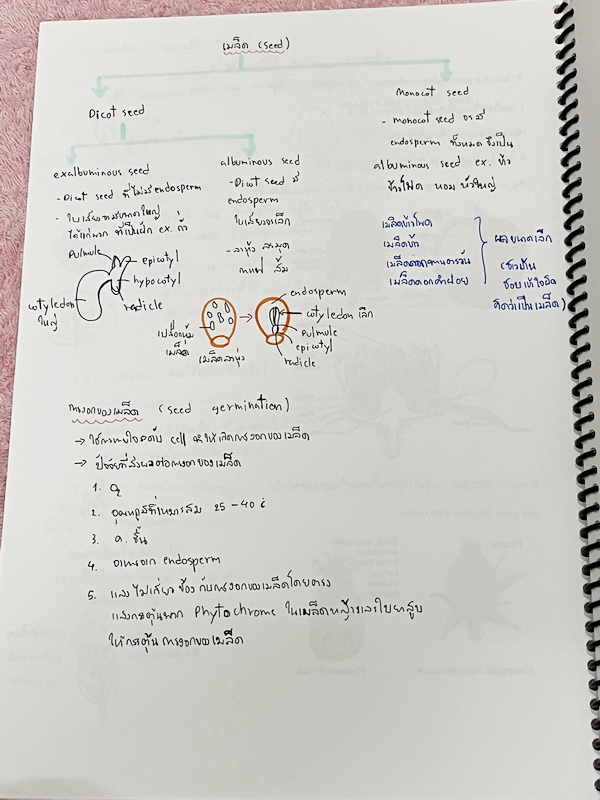 เมล็ด (seed)
Dicot seed
exalbuminous seed
- Dicot seed ที่ไม่มี endosperm
- ใบเลี้ยงขนาดใหญ่
ได้แก่พวก ที่เป็นฝัก ex. ถั่ว
Pulmule
epicotyl
hypocotyl
cotyledon
ใหญ่
radicle
albuminous seed
- Dicot seed มี
endosperm
ใบเลี้ยงจะเล็ก
- ละหุ่ง ละมุด
กาแฟ ส้ม
เปลือกหุ้ม
เมล็ด
เมล็ดละหุ่ง
endosperm
cotyledon เล็ก
Pulmule
epicotyl
radicle
Monocot seed
- monocot seed จะมี
endosperm ทั้งหมด จึงเป็น
albuminous seed ex. ข้าว
ข้าวโพด หอม หัวใหญ่
เมล็ดข้าวโพด
เมล็ดข้าว
เมล็ดดอกทานตะวัน
เมล็ดดอกคำฝอย
ผลขนาดเล็ก
(ชาวบ้าน
ชอบเข้าใจผิด
คิดว่าเป็นเมล็ด)
การงอกของเมล็ด (seed germination)
→ ใช้การหายใจระดับ cell ทำให้เกิดการงอกของเมล็ด
→ ปัจจัยที่ส่งผลต่อการงอกของเมล็ด
1. O₂
2. อุณหภูมิที่เหมาะสม 25 - 40 c
3. ค. ชื้น
4. อาหารจาก endosperm
5. แสง ไม่เกี่ยวข้อง กับการงอกของเมล็ดโดยตรง
แสงกระตุ้นพวก Phytochrome ในเมล็ดหญ้าและใบยาสูบ
ให้กระตุ้น การงอกของเมล็ด